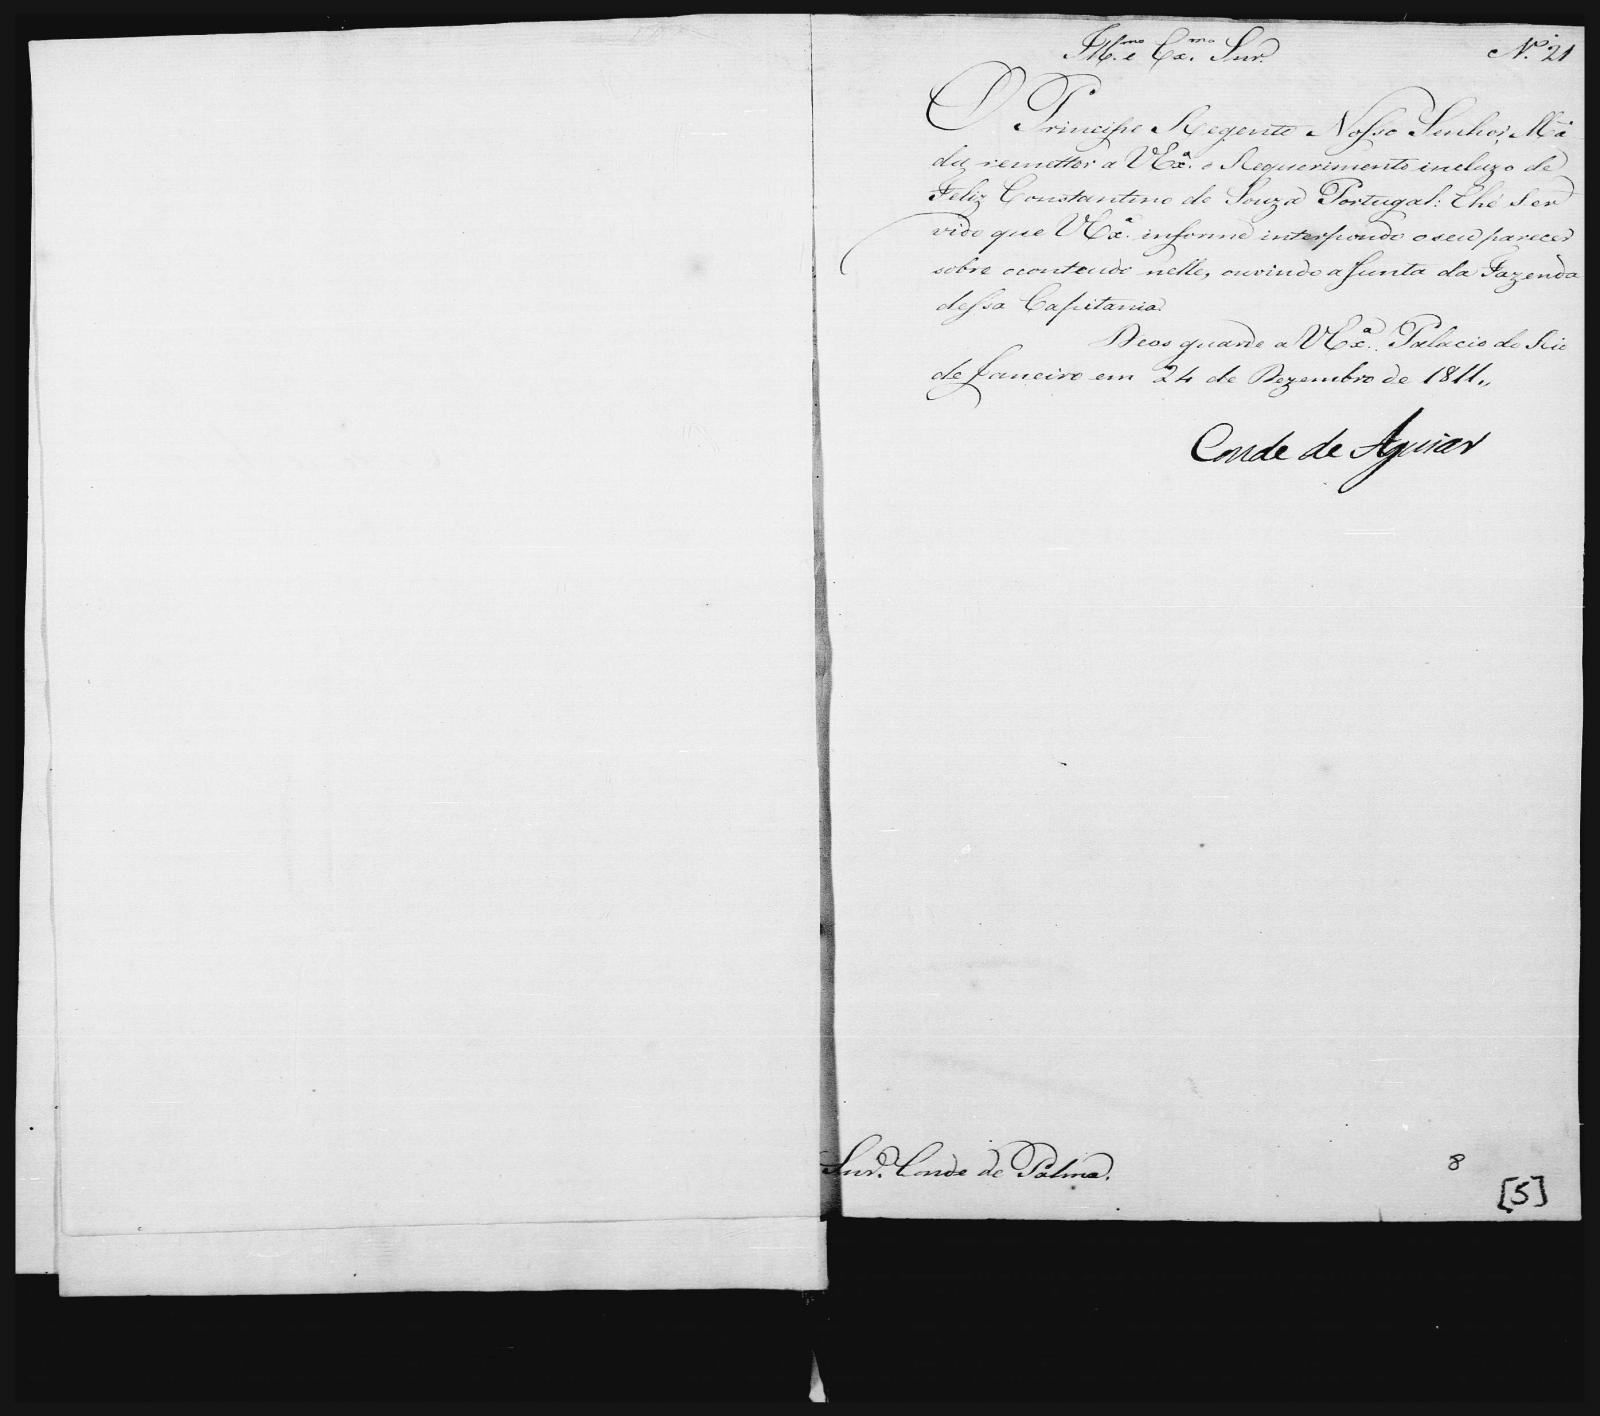 Ill.mo e Ex.mo Snr.
N.º 21
O Principe Regente Nosso Senhor, Mã
da remetter a V Ex.ª o Requerimento incluzo de
Feliz Constantino de Souza Portugal: E hé Ser
vido que V Ex.ª informe interpondo o seu parecer
sobre o conteudo nelle, ouvindo a Junta da Fazenda
dessa Capitania.
Deos guarde a V Ex.ª Palacio do Rio
de Janeiro em 24 de Dezembro de 1811,,
Conde de Aguiar
Snr. Conde de Palma.
8
[5]